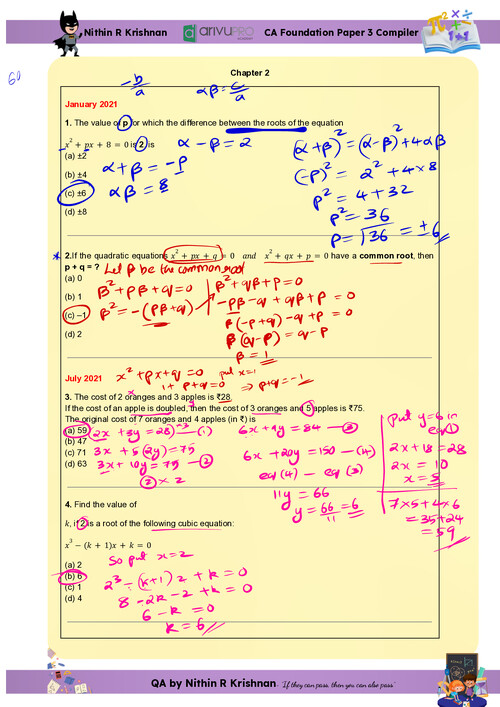 Nithin R Krishnan arivupro ACADEMY CA Foundation Paper 3 Compiler
Chapter 2
-b/a αβ = c/a
January 2021
1. The value of p for which the difference between the roots of the equation
x² + px + 8 = 0 is 2 is
α - β = 2
(a) ±2
(b) ±4
(c) ±6
(d) ±8
α + β = -p
αβ = 8
(α+β)² = (α-β)² + 4αβ
(-p)² = 2² + 4×8
p² = 4 + 32
p² = 36
p = √36 = ±6
2.If the quadratic equations x² + px + q = 0 and x² + qx + p = 0 have a common root, then
p + q = ?
Let β be the common root
(a) 0
(b) 1
(c) –1
(d) 2
β² + pβ + q = 0
β² = -(pβ+q)
β² + qβ + p = 0
-pβ - q + qβ + p = 0
β(-p+q) - q + p = 0
β(q-p) = q-p
β = 1
x² + px + q = 0 put x=1
1 + p + q = 0 ⇒ p+q = -1
July 2021
3. The cost of 2 oranges and 3 apples is ₹28.
If the cost of an apple is doubled, then the cost of 3 oranges and 5 apples is ₹75.
The original cost of 7 oranges and 4 apples (in ₹) is
(a) 59
(b) 47
(c) 71
(d) 63
2x + 3y = 28 — (1)
3x + 5(2y) = 75
3x + 10y = 75 — (2)
(2) × 2
6x + 9y = 84 — (3)
6x + 20y = 150 — (4)
eq(4) — eq(3)
11y = 66
y = 66/11 = 6
put y=6 in
eq(1)
2x + 18 = 28
2x = 10
x = 5
7×5 + 4×6
= 35+24
= 59
4. Find the value of
k, if 2 is a root of the following cubic equation:
x³ − (k + 1)x + k = 0
So put x=2
(a) 2
(b) 6
(c) 1
(d) 4
2³ - (k+1)2 + k = 0
8 - 2k - 2 + k = 0
6 - k = 0
k = 6
QA by Nithin R Krishnan. "If they can pass, then you can also pass"